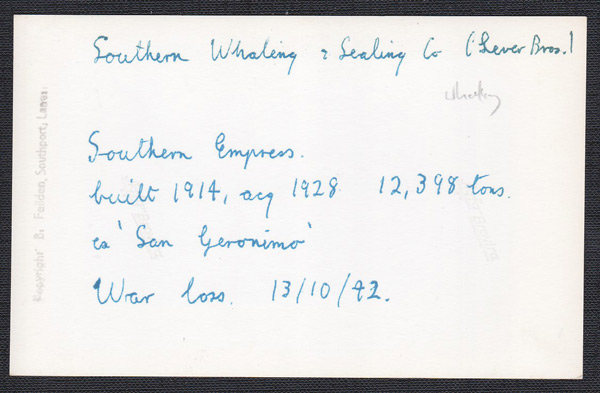 Southern Whaling & Sealing Co (Lever Bros.)
Whaling
Southern Empress.
built 1914, acq 1928 12,398 tons.
ex 'San Geronimo'
War loss. 13/10/42.
Copyright B. Feilden, Southport, Lancs.